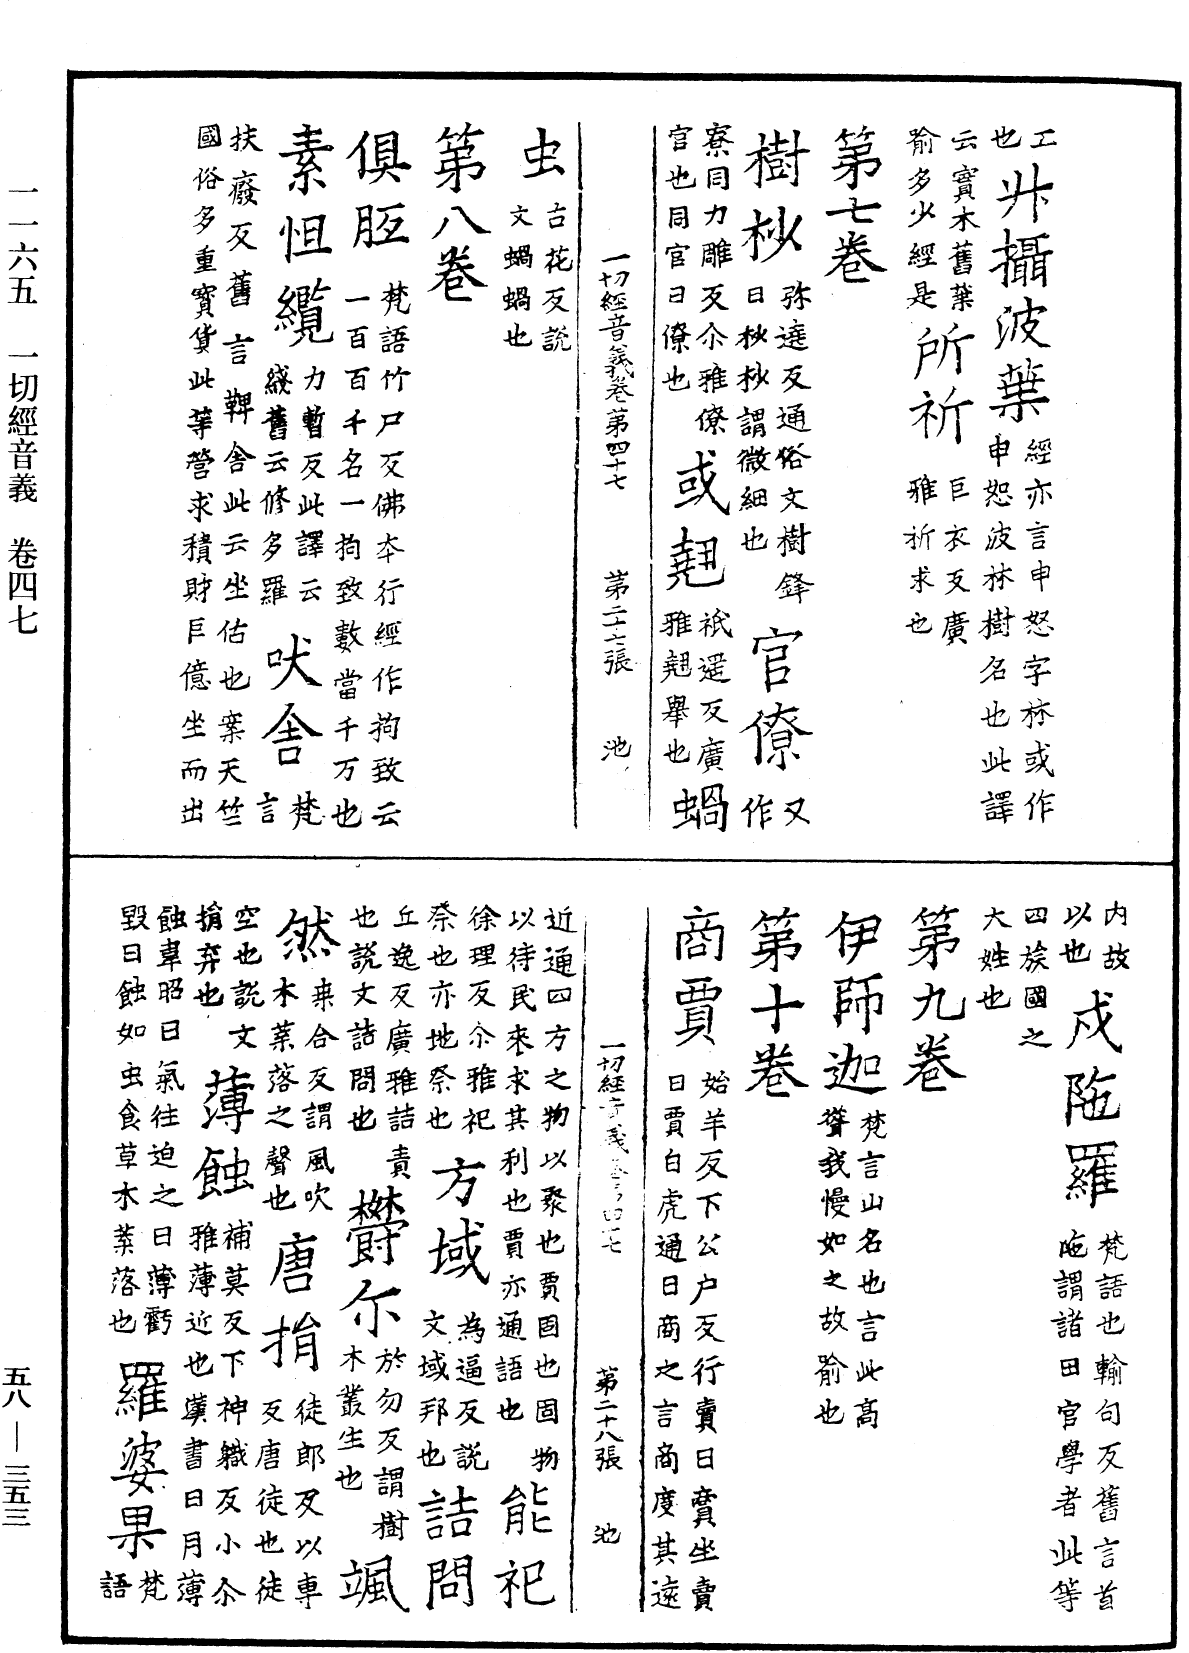 工
也 𠦑攝波葉 經亦言申怒字林或作
申恕波林樹名也此譯
云實木舊葉
喻多少經是 所祈 巨衣反廣
雅祈求也
第七卷
樹杪 弥遶反通俗文樹鋒
曰杪杪謂微細也 官僚 又作
寮同力雕反尒雅僚
官也同官曰僚也 或翹 祇遥反廣
雅翹舉也 蝸
一切經音義卷第四十七 第二十六張 池
虫 古花反説
文蝸蝸也
第八卷
俱胝 梵語竹尸反佛本行經作拘致云
一百百千名一拘致數當千万也
素怛纜 力暫反此譯云
綫舊云修多羅 吠舍 梵言
扶廢反舊言鞞舍此云坐估也案天竺
國俗多重寶貨此等營求積財巨億坐而出
内故
以也 戍陁羅 梵語也輸句反舊言首
陁謂諸田官學者此等
四族國之
大姓也
第九卷
伊師迦 梵言山名也言此高
聳我慢如之故喻也
第十卷
商賈 始羊反下公户反行賣曰賣坐賣
曰賈白虎通曰商之言商度其遠
一切經音義卷第四十七 第二十八張 池
近通四方之物以聚也賈固也固物
以待民來求其利也賈亦通語也 能祀
徐理反尒雅祀
祭也亦地祭也 方域 為逼反説
文域邦也 詰問
丘逸反廣雅詰責
也説文詰問也 欝尒 於勿反謂樹
木叢生也 颯
然 桒合反謂風吹
木葉落之聲也 唐捐 徒郎反以專
反唐徒也徒
空也説文
捐弃也 薄蝕 補莫反下神軄反小尒
雅薄近也漢書日月薄
蝕韋昭曰氣往迫之曰薄虧
毀曰蝕如虫食草木葉落也 羅婆果 梵
語
一一六五 一切經音義 卷四七
五八—三五三